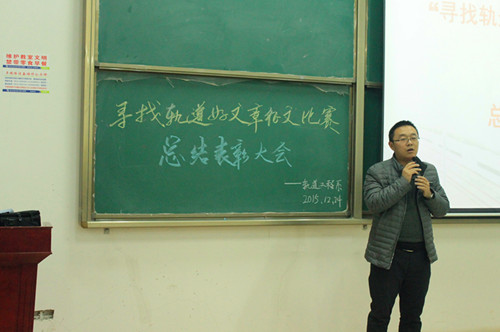 维护教室文明
“寻找轨
寻找轨道好文章征文比赛
总结表彰大会
——轨道工程系
2015.12.24
总